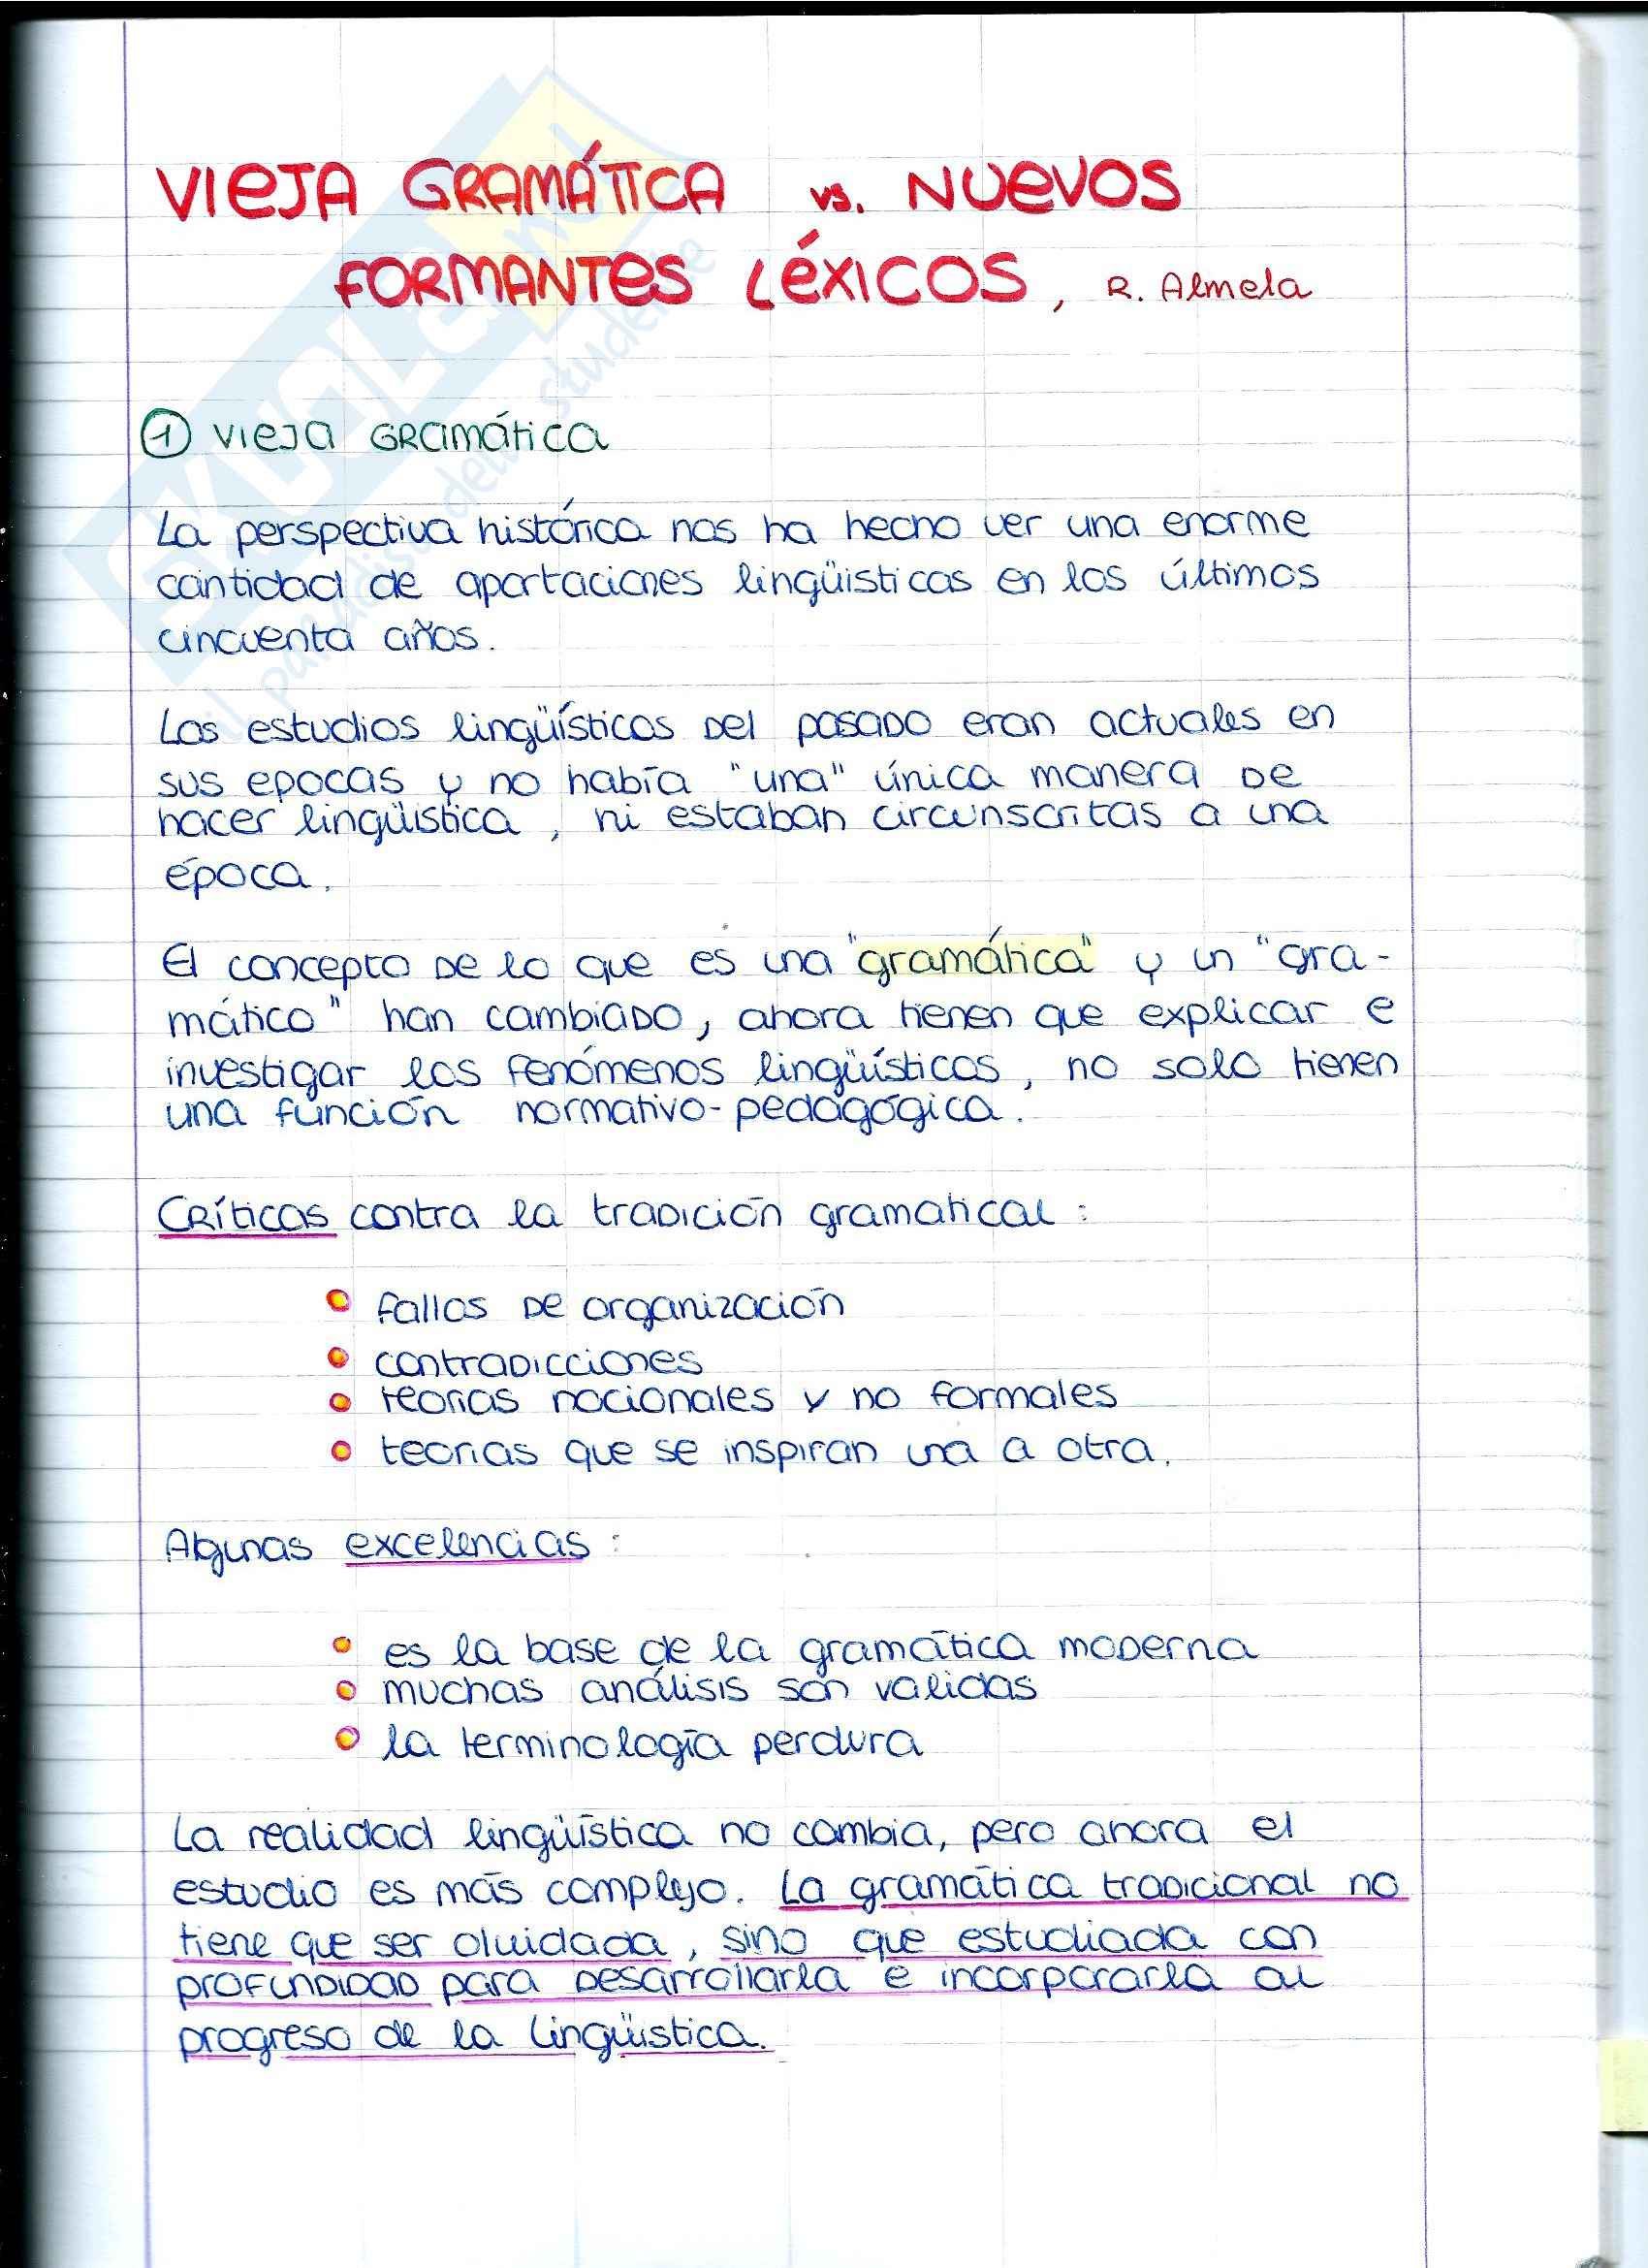 VIEJA GRAMÁTICA vs. NUEVOS
FORMANTES LÉXICOS, R. Almela
① VIEJA GRAMÁTICA
La perspectiva histórica nos ha hecho ver una enorme
cantidad de aportaciones lingüisticas en los últimos
cincuenta años.
Los estudios lingüísticos del pasado eran actuales en
sus epocas y no había "una" única manera de
hacer lingüistica, ni estaban circunscritas a una
época.
El concepto de lo que es una "gramática" y un "gra-
mático" han cambiado, ahora tienen que explicar e
investigar los fenómenos lingüísticos, no solo tienen
una función normativo-pedagógica.
Críticas contra la tradición gramatical:
• fallos de organización
• contradicciones
• teorias nocionales y no formales
• teorias que se inspiran una a otra.
Algunas excelencias:
• es la base de la gramática moderna
• muchas análisis son validas
• la terminología perdura
La realidad lingüística no cambia, pero ahora el
estudio es más complejo. La gramática tradicional no
tiene que ser olvidada, sino que estudiada con
profundidad para desarrollarla e incorporarla al
progreso de la lingüistica.